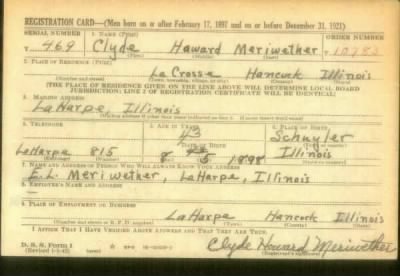 REGISTRATION CARD—(Men born on or after February 17, 1897 and on or before December 31, 1921)
SERIAL NUMBER 1. NAME (Print) ORDER NUMBER
T 469 Clyde Howard Meriwether T 10983
(First) (Middle) (Last)
2. PLACE OF RESIDENCE (Print)
La Crosse Hancock Illinois
(Number and street) (Town, township, village, or city) (County) (State)
[THE PLACE OF RESIDENCE GIVEN ON THE LINE ABOVE WILL DETERMINE LOCAL BOARD
JURISDICTION; LINE 2 OF REGISTRATION CERTIFICATE WILL BE IDENTICAL]
3. MAILING ADDRESS
LaHarpe, Illinois
4. TELEPHONE 5. AGE IN YEARS 6. PLACE OF BIRTH
43 Schuyler
DATE OF BIRTH
LaHarpe 815 8 5 1898 Illinois
7. NAME AND ADDRESS OF PERSON WHO WILL ALWAYS KNOW YOUR ADDRESS
E. L. Meriwether, LaHarpe, Illinois
8. EMPLOYER'S NAME AND ADDRESS
9. PLACE OF EMPLOYMENT OR BUSINESS
LaHarpe Hancock Illinois
(Number and street or R. F. D. number) (Town) (County) (State)
I AFFIRM THAT I HAVE VERIFIED ABOVE ANSWERS AND THAT THEY ARE TRUE.
D. S. S. Form 1
(Revised 1-5-42) Clyde Howard Meriwether